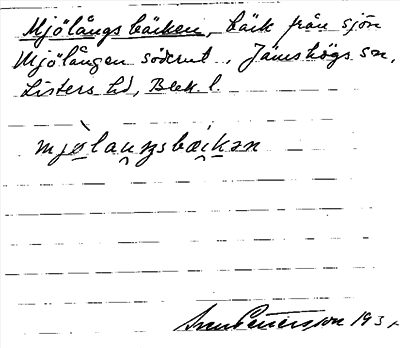 Mjölångsbäcken, bäck från sjön
Mjölången söderut, Jämshögs sn,
Listers hd, Blek. l.
mjòlaŋsbæikən
Sven Pettersson 193